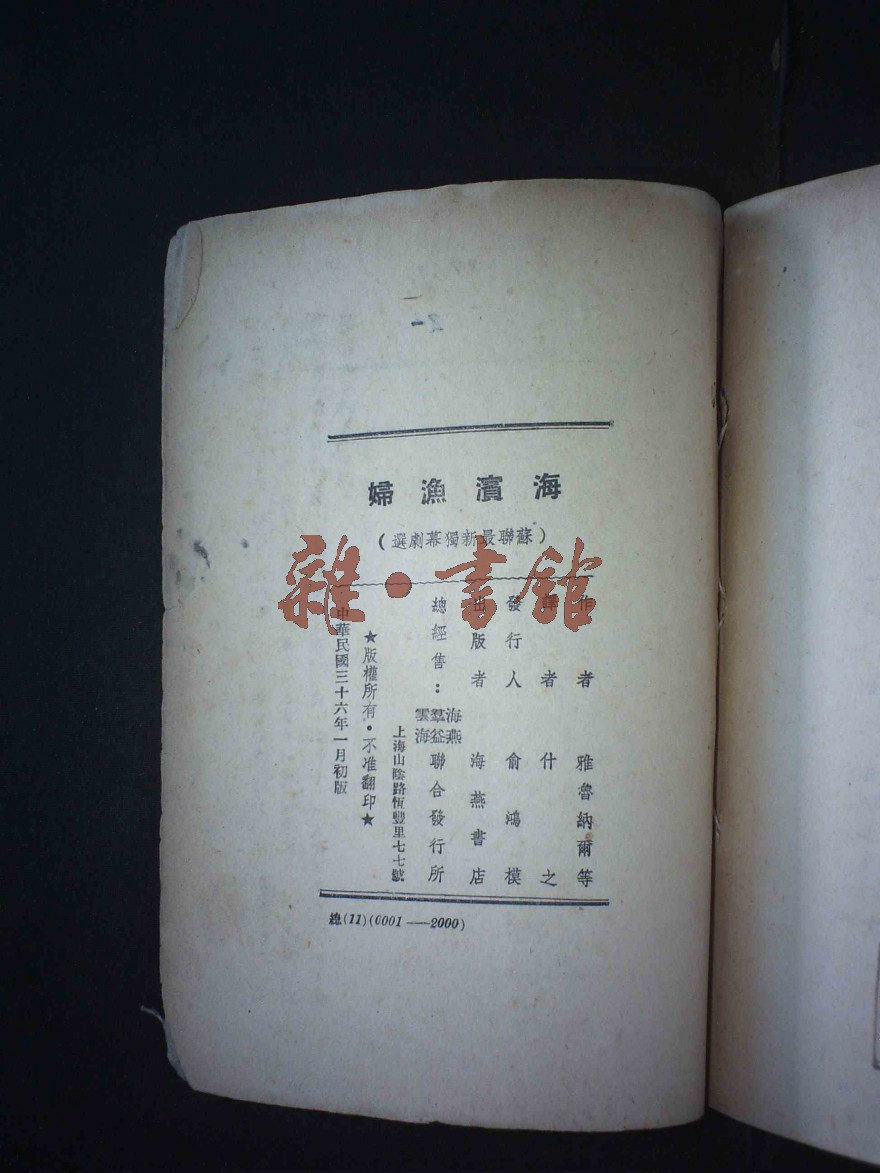 海濱漁婦
(蘇聯最新獨幕劇選)
作者 雅魯納爾等
譯者 什之
發行人 俞鴻模
出版者 海燕書店
總經售：海燕 羣益 雲海 聯合發行所
上海山陰路恆豐里七七號
★版權所有·不准翻印★
中華民國三十六年一月初版
總(11)(0001——2000)
雜·書館